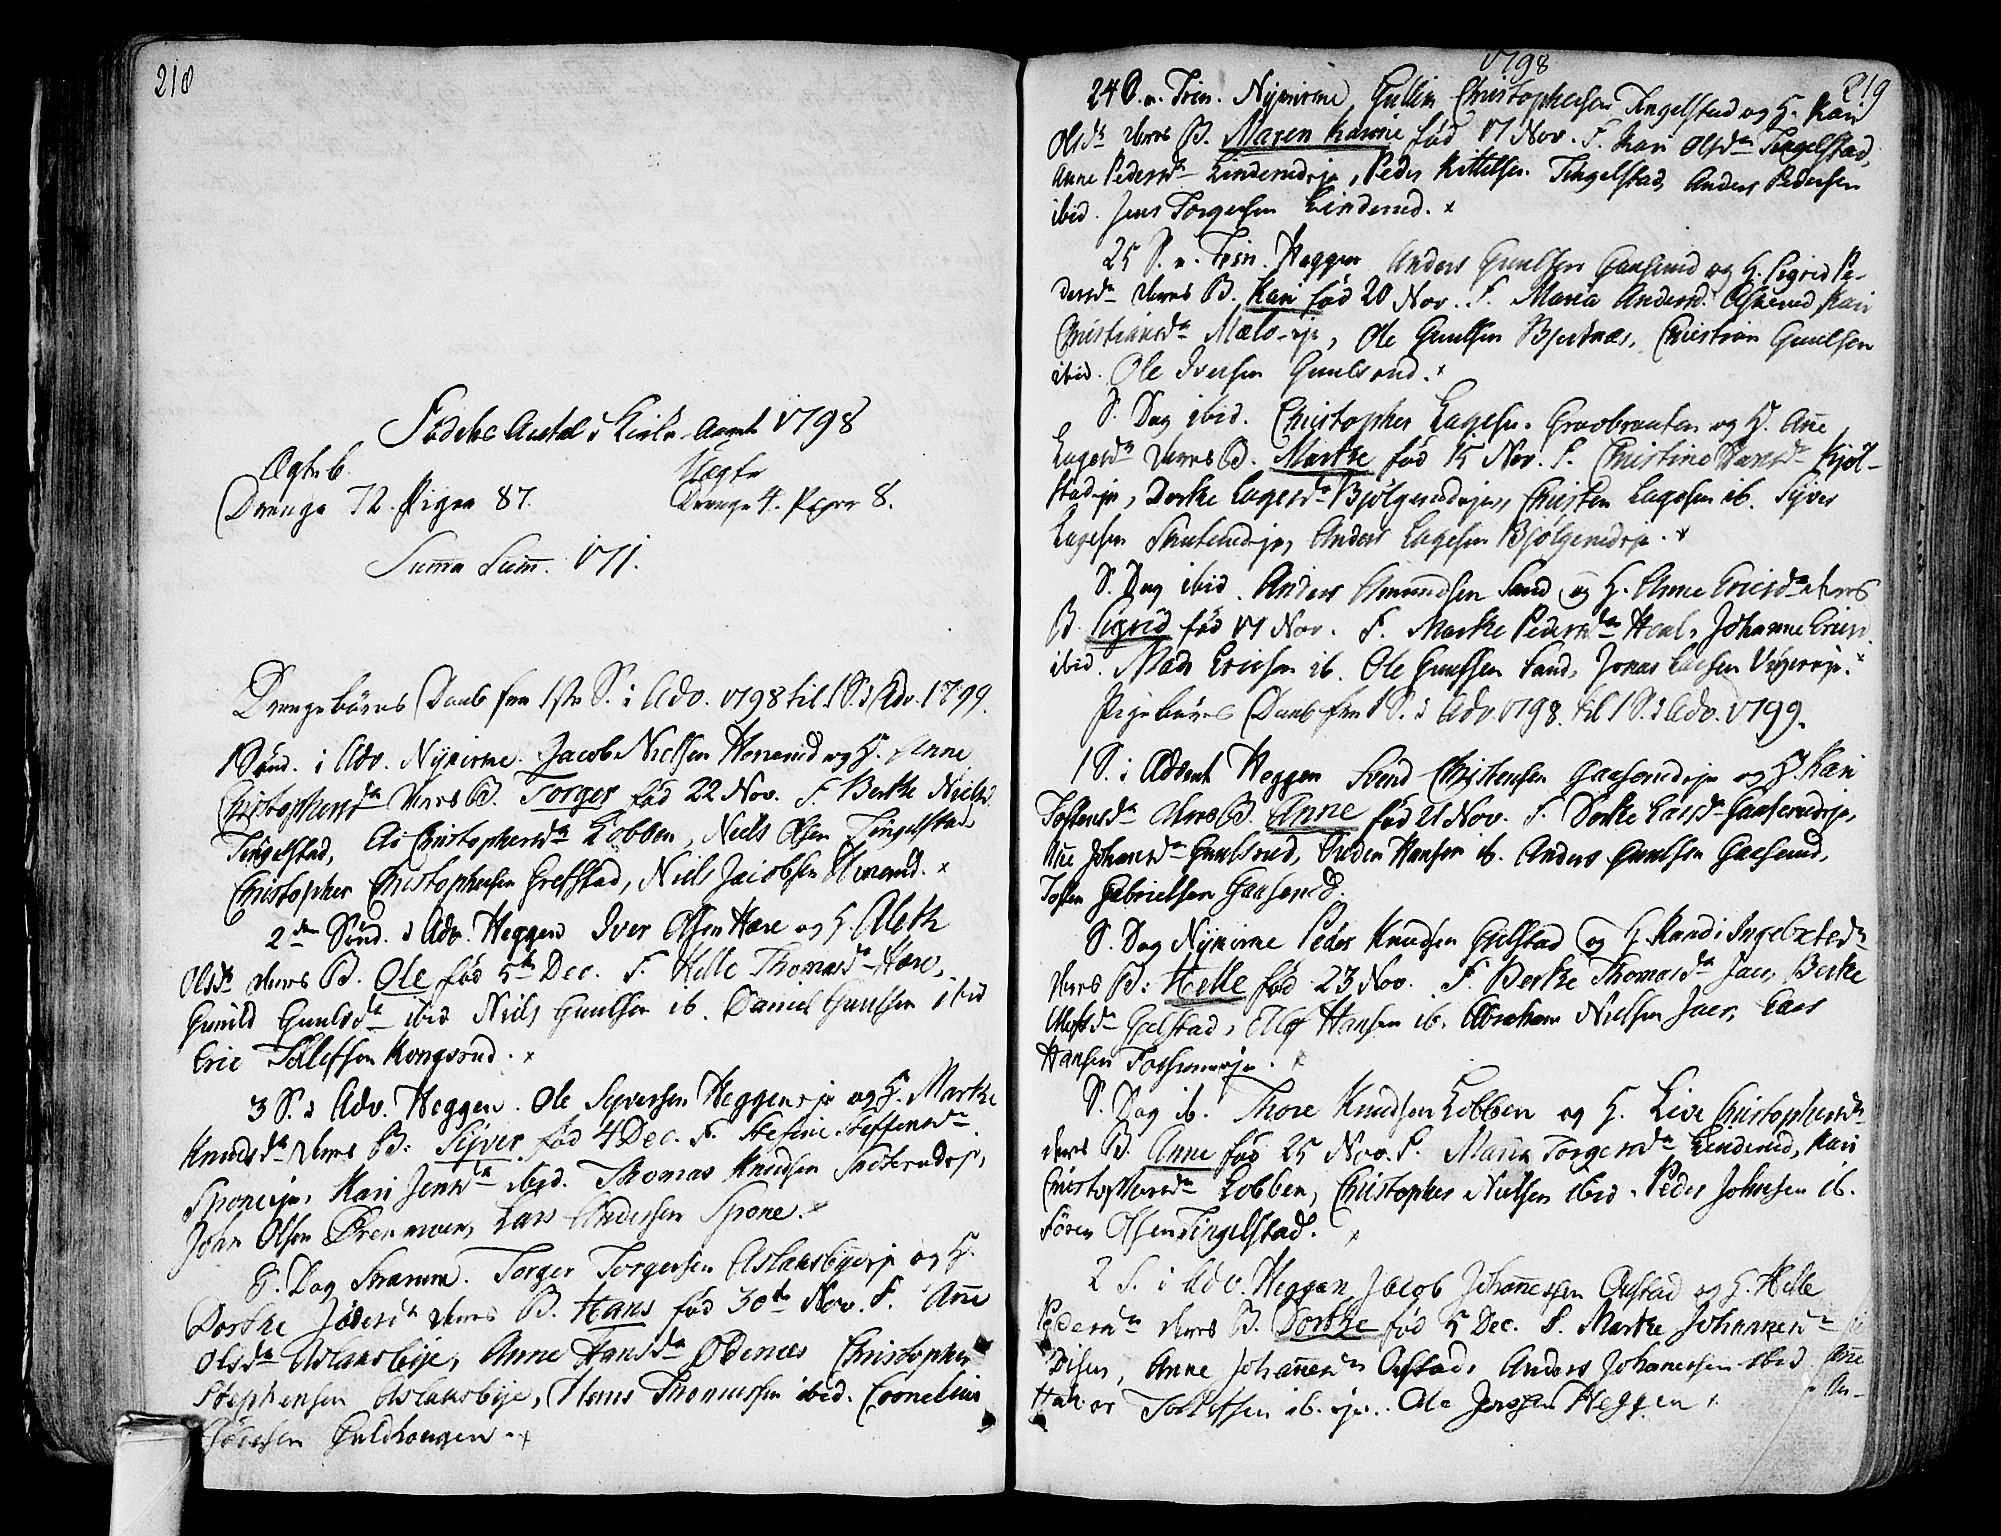 218
Födde Antal i Kirke-Aaret 1798
Ægteb. Uægte
Drenge 72. Piger 87. Drenge 4. Piger 8.
Summa Sum. 171.
Drengebörns Daab fra 1ste S. i Adv. 1798 til 1 S. i Adv. 1799.
1 Sönd. i Adv. Nykirke. Jacob Nielsen Horerud og H. Anne
Christophersdr deres B. Torger föd 22 Nov. F. Berthe Nielsd.
Tingelstad, Christophersdr Lobben, Niels Olsen Tingelstad
Christopher Christophersen Grefstad, Niels Jacobsen Horerud. x
2den Sönd. i Adv. Heggen Iver Olsen Hære og H. Aleth
Olsdr deres B. Ole föd 5te Dec. F. Helle Thomasdr Hære,
Gunild Gunlsdr ibid Niels Gunlsen ib. Daniel Gunlsen ibid
Eric Tollefsen Kongsrud. x
3 S. i Adv. Heggen. Ole Syversen Heggeneje og H. Marthe
Knudsdr deres B: Syver föd 4 Dec. F. Steffensdr
Sponeeje, Kari Jensdr ibid. Thomas Knudsen
John Olsen Ørenmoen, Lars Andersen Spone. x
S. Dag Snarum. Torger Torgersen Aslaksbyeeje og H.
Dorthe deres B. Hans föd 30te Nov. F. Añe
Olsdr Aslaksbye, Anne Hansdr Ødenæs Christopher
Stephensen Aslaksbye, Hans Thomassen ibid. Cornelius
Guldhougen. x
1798
219
24 S. e. Trin. Nykirke, Gullik Christophersen Tingelstad og H. Kari
Olsdr deres B. Maren Karine föd 17 Nov. F. Kari Olsdr Tingelstad,
Anne Pedersdr Linderudeje, Peder Kittelsen Tingelstad Anders Pedersen
ibid. Jens Torgersen Linderud. x
25 S. e. Trin. Heggen Anders Gunlsen Gaaserud og H. Sigrid Pe-
dersdr deres B. Kari föd 20 Nov. F. Maria Andersd. Askerud Kari
Christiansdr Mæloeje, Ole Gunlsen Bjertnæs, Christian Gunlsen
ibid. Ole Iversen Gunlsrud. x
S. Dag ibid. Christopher Lagesen Gravbrauten og H. Añe
Lagesdr deres B. Marthe föd 15 Nov. F. Christine Hansdr Kjöl-
stadeje, Dorthe Lagesdr Bjölgerudeje, Christen Lagesen ib. Syver
Lagesen Skuterudeje, Anders Lagesen Bjölgerudeje. x
S. Dag ibid. Anders Amundsen Sand og H. Anne Ericsdr deres
B. Sigrid föd 17 Nov. F. Marthe Pedersdr Hoel, Johanne Ericsd.
ibid. Mads Ericsen ib. Ole Gunlsen Sand, Jonas Larsen Vigereje. x
Pigebörns Daab fra 1 S. i Adv. 1798. til 1 S. i Adv. 1799.
1 S. i Advent Heggen Svend Christensen Gaaserudeje og H. Kari
Tostensdr deres B. Anne föd 21 Nov. F. Dorthe Larsdr Gaaserudeje,
Añe Johansdr Gunlsrud, Hansen ib. Anders Gunlsen Gaaserud,
Tosten Gabrielsen Gaaserud.
S. Dag Nykirke Peder Knudsen Gjelstad og H. Randi Ingebretsdr
deres B: Helle föd 23 Nov. F. Berthe Thomasdr Jaer, Berthe
Olafsdr Gjelstad, Ellef Hansen ib. Abraham Nielsen Jaer, Lars
Hansen
S. Dag ib. Thore Knudsen Lobben og H. Live Christophersdr
deres B. Anne föd 25 Nov. F. Maria Torgersdr Linderud, Kari
Christophersdr Lobben, Christopher Nielsen ibid. Peder Johnsen ib.
Sören Olsen Tingelstad. x
2 S. i Adv. Heggen Jacob Johañessen Ourstad og H. Helle
Pedersdr deres B. Dorthe föd 5 Dec. F. Marthe Johannesdr
Disen, Anne Johañesdr Ourstad, Anders Johanessen ibid Añe
Halvor Tollefsen ib. eje. Ole Jensen Heggen. An-